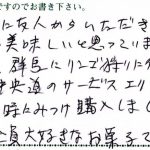 ですのでお書き下さい。
に友人からいただき
美味しいと思っていま
群馬にリンゴ狩りに
央道のサービスエリ
時にみつけ購入しまし
員大好きなお菓子で